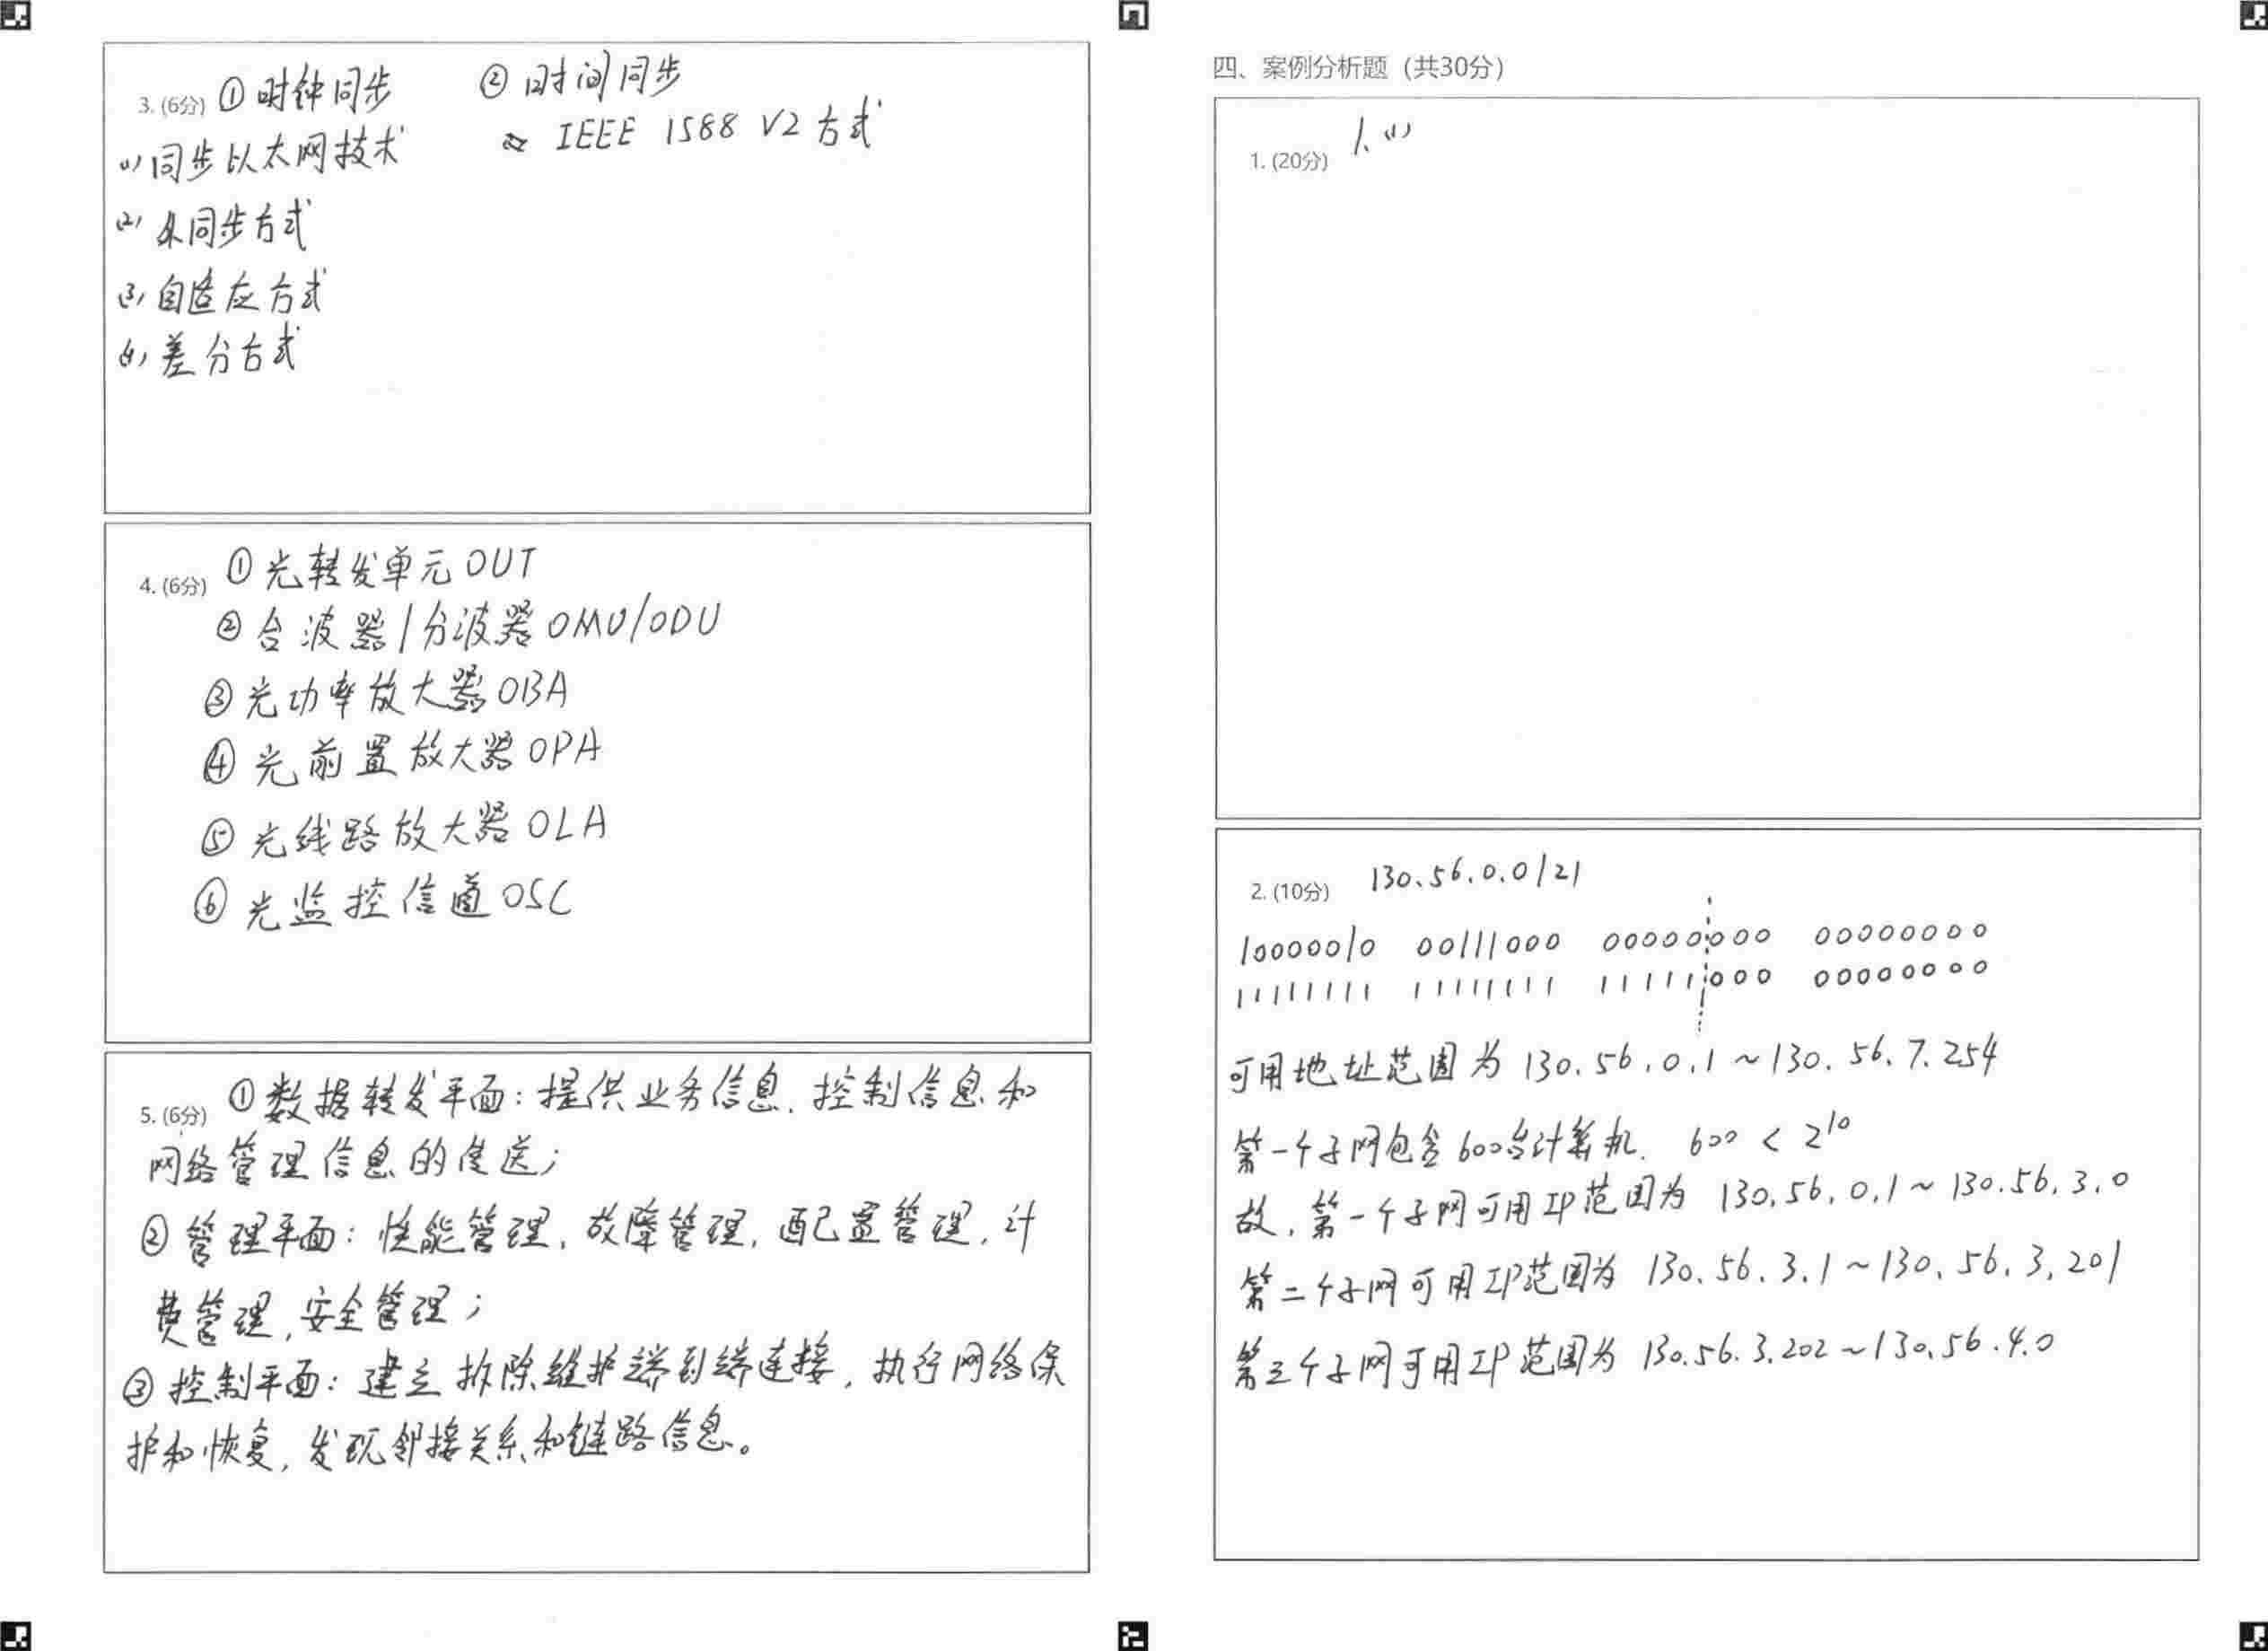 3. (6分) ① 时钟同步 ② 时间同步
(1) 同步以太网技术 IEEE 1588 V2 方式
(2) 同步方式
(3) 自适应方式
(4) 差分方式
4. (6分) ① 光转发单元 OUT
② 合波器/分波器 OMU/ODU
③ 光功率放大器 OBA
④ 光前置放大器 OPA
⑤ 光线路放大器 OLA
⑥ 光监控信道 OSC
5. (6分) ① 数据转发平面：提供业务信息、控制信息和
网络管理信息的传送；
② 管理平面：性能管理，故障管理，配置管理，计
费管理，安全管理；
③ 控制平面：建立拆除维护端到端连接，执行网络保
护和恢复，发现邻接关系和链路信息。
四、案例分析题（共30分）
1. (20分) 1、(1)
2. (10分) 130.56.0.0/21
10000010 00111000 00000000 00000000
11111111 11111111 11111000 00000000
可用地址范围为 130.56.0.1 ~ 130.56.7.254
第一个子网包含 600台计算机. 600 < 2^10
故，第一个子网可用IP范围为 130.56.0.1 ~ 130.56.3.0
第二个子网可用IP范围为 130.56.3.1 ~ 130.56.3.201
第三个子网可用IP范围为 130.56.3.202 ~ 130.56.4.0